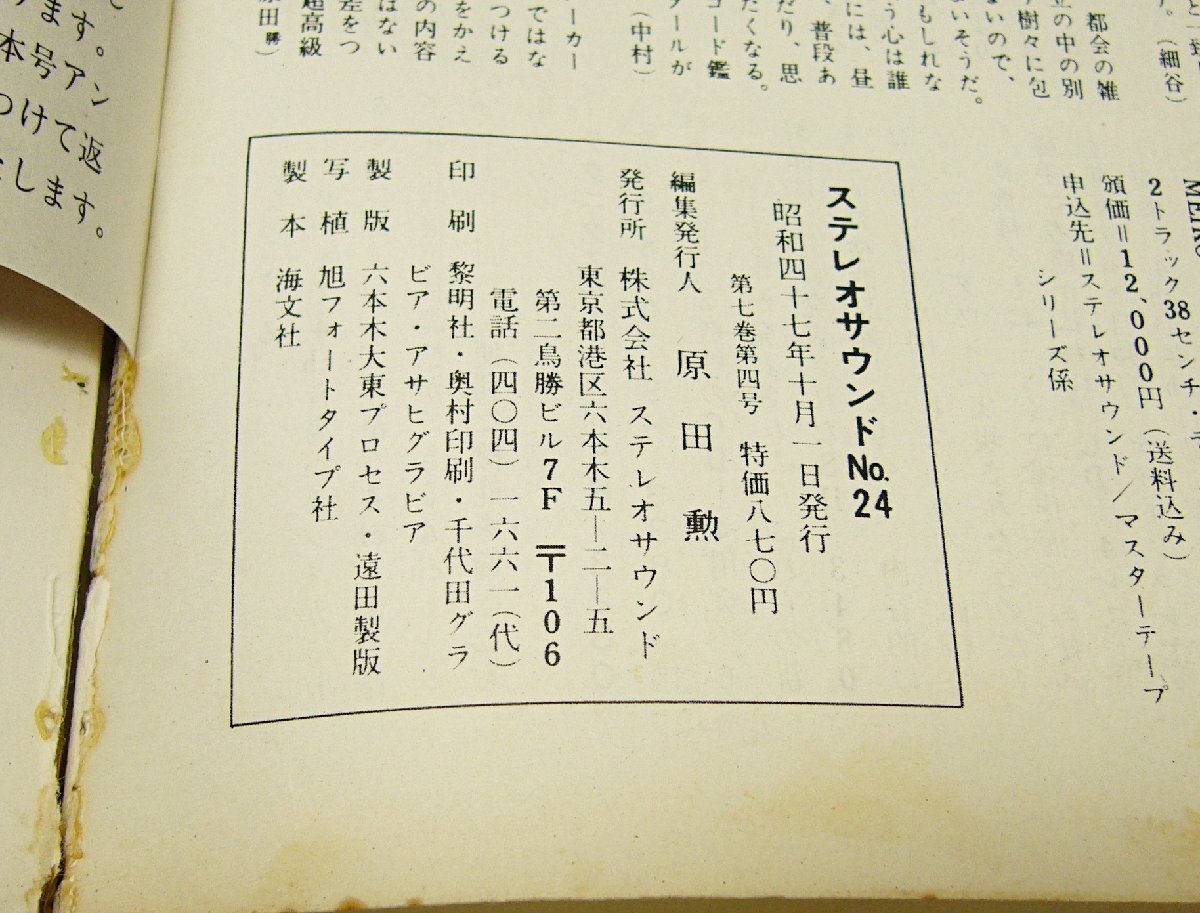 都会の雑
立の中の別
ないので、
樹々に包
もしれな
いそうだ。
う心は誰
には、昼
、普段あ
だり、思
たくなる。
コード鑑
ールが
(中村)
ーカー
ではな
つける
をかえ
の内容
はない
差をつ
超高級
原田勝)
。(細谷)
2トラック38センチ・テ
頒価=12,000円(送料込み)
申込先=ステレオサウンド/マスターテープ
シリーズ係
ステレオサウンドNo.24
昭和四十七年十月一日発行
第七巻第四号 特価八七〇円
編集発行人 原田 勲
発行所 株式会社 ステレオサウンド
東京都港区六本木五―二―五
第二鳥勝ビル7F 〒106
電話(四〇四)一六六一(代)
印刷 黎明社・奥村印刷・千代田グラ
ビア・アサヒグラビア
製版 六本木大東プロセス・遠田製版
写植 旭フォートタイプ社
製本 海文社
ます。
本号アン
つけて返
します。